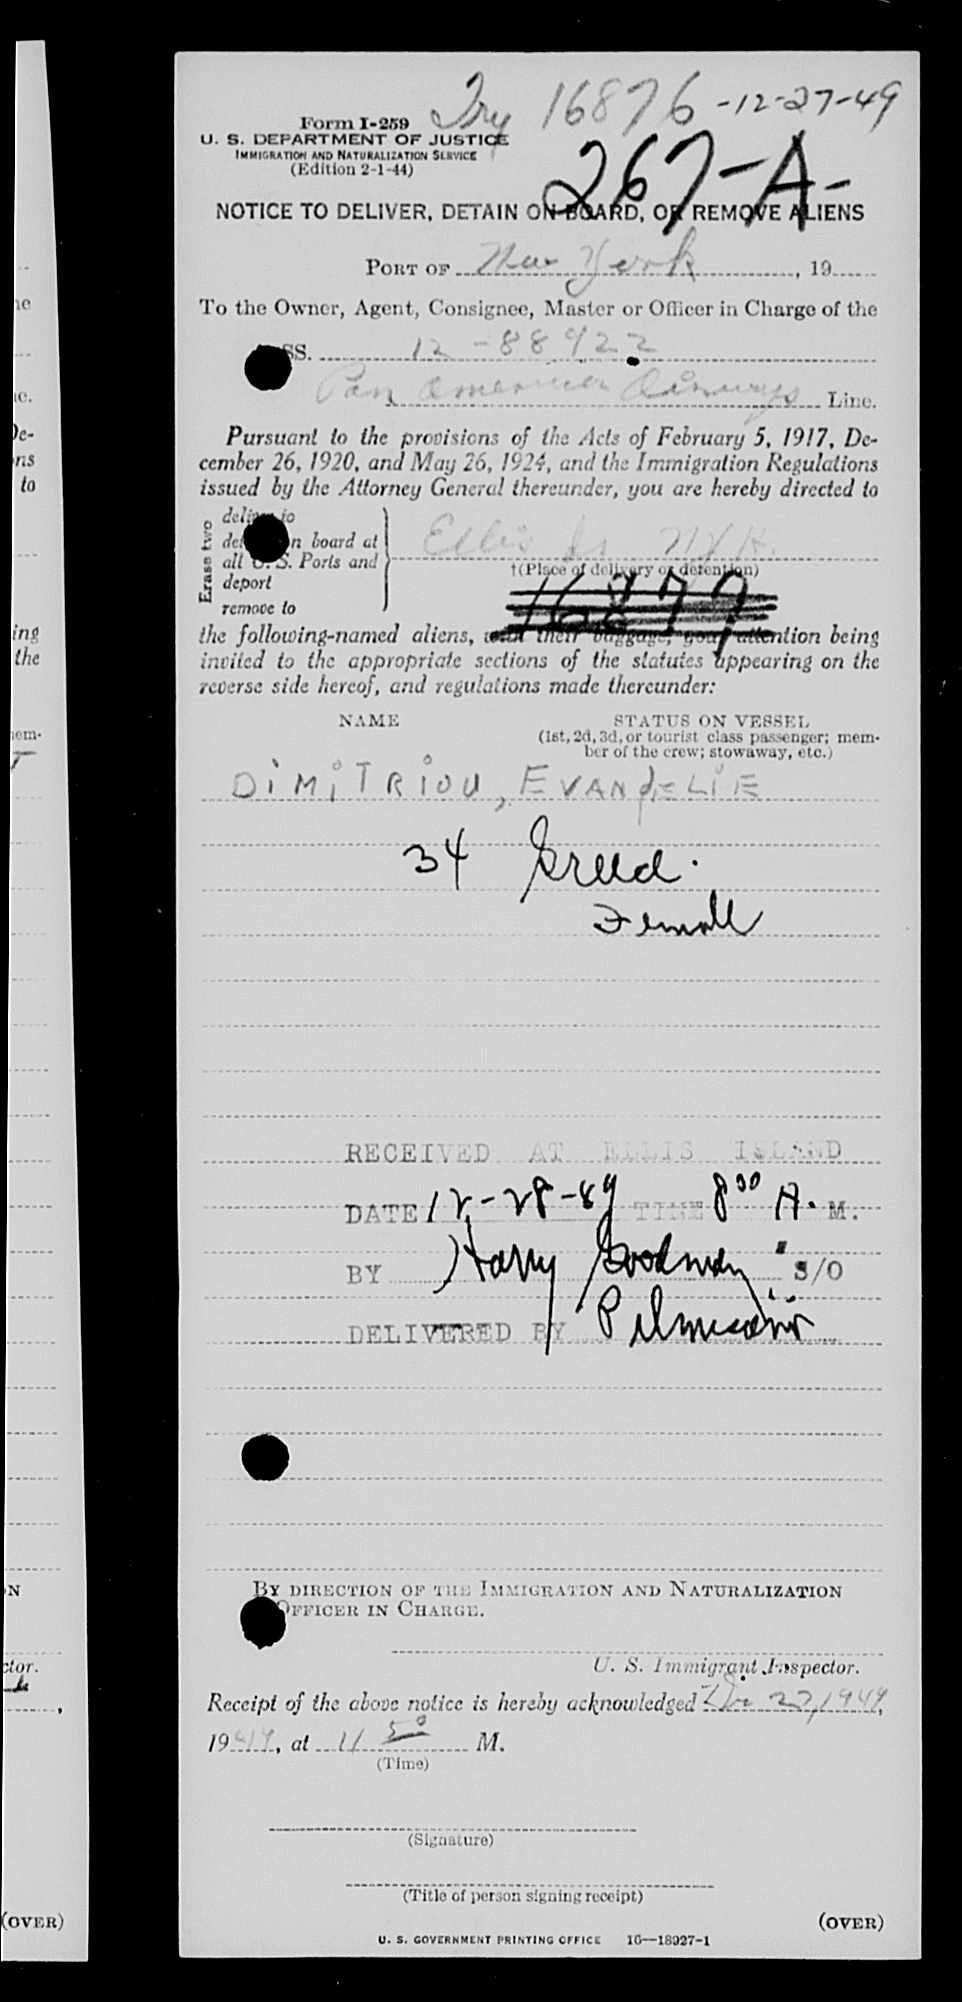 Try 16876 -12-27-49
Form I-259
U. S. DEPARTMENT OF JUSTICE
IMMIGRATION AND NATURALIZATION SERVICE
(Edition 2-1-44)
267-A-
NOTICE TO DELIVER, DETAIN ON BOARD, OR REMOVE ALIENS
PORT OF New York, 19
To the Owner, Agent, Consignee, Master or Officer in Charge of the
SS. 12-88922
Pan American Airways Line.
Pursuant to the provisions of the Acts of February 5, 1917, De-
cember 26, 1920, and May 26, 1924, and the Immigration Regulations
issued by the Attorney General thereunder, you are hereby directed to
Erase two
deliver to
detain on board at
all U. S. Ports and
deport
remove to
Ellis Is. N.Y.H.
†(Place of delivery or detention)
the following-named aliens, with their baggage, your attention being
invited to the appropriate sections of the statutes appearing on the
reverse side hereof, and regulations made thereunder:
NAME STATUS ON VESSEL
(1st, 2d, 3d, or tourist class passenger; mem-
ber of the crew; stowaway, etc.)
DIMITRIOU, EVANGELIE
34
Female
RECEIVED AT ELLIS ISLAND
DATE 12-28-49 TIME 8 30 A. M.
BY Harry Goodman S/O
DELIVERED BY
BY DIRECTION OF THE IMMIGRATION AND NATURALIZATION
OFFICER IN CHARGE.
U. S. Immigrant Inspector.
Receipt of the above notice is hereby acknowledged Dec 27, 1949,
1949, at 11 50 M.
(Time)
(Signature)
(Title of person signing receipt)
(OVER)
U. S. GOVERNMENT PRINTING OFFICE 16—18927-1
(OVER)